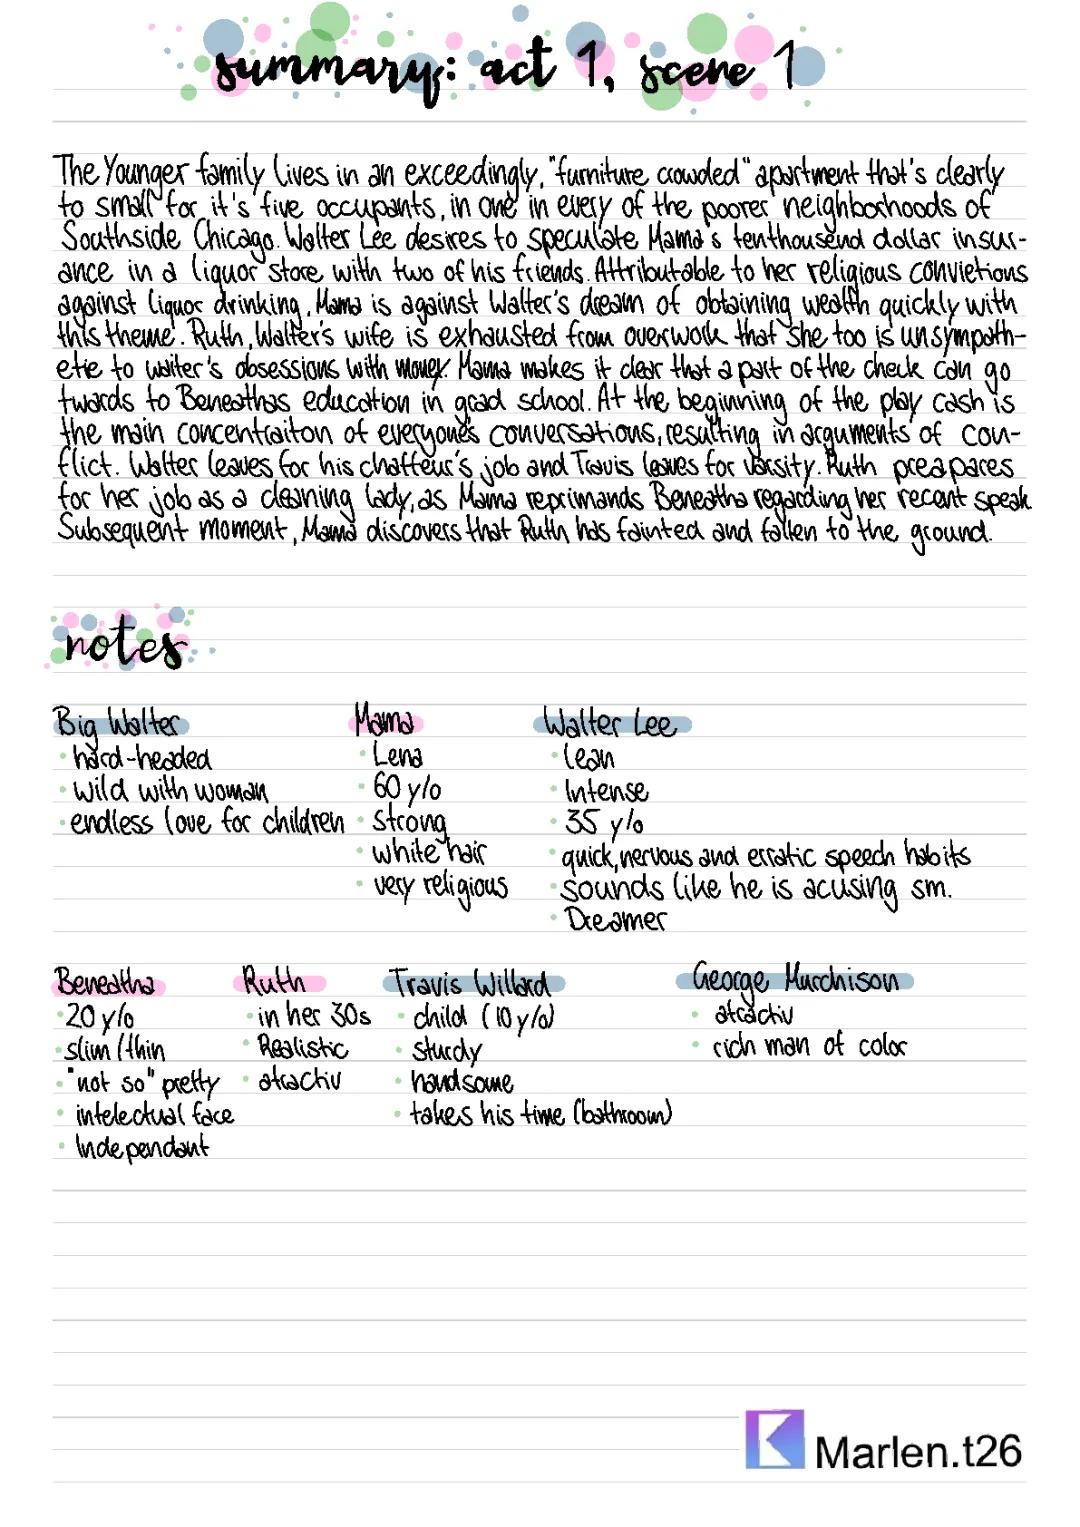 summary: act 1, scene 1
The Younger family lives in an exceedingly, "furniture crowded" apartment that's clearly
to small for it's five occupants, in one in every of the poorer neighborhoods of
Southside Chicago. Walter Lee desires to speculate Mama's tenthousend dollar insur-
ance in a liquor store with two of his friends. Attributable to her religious convietions
against liquor drinking, Mama is against Walter's dream of obtaining wealth quickly with
this theme. Ruth, Walter's wife is exhausted from overwork that she too is unsympath-
etie to walter's obsessions with money. Mama makes it clear that a part of the check can go
twards to Beneathas education in grad school. At the beginning of the play cash is
the main concentraiton of everyone's conversations, resulting in arguments of con-
flict. Walter leaves for his chaffeur's job and Travis leaves for varsity. Ruth preapares
for her job as a cleaning lady, as Mama reprimands Beneatha regarding her recent speak
Subsequent moment, Mama discovers that Ruth has fainted and fallen to the ground.
notes
Big Walter
• hard-headed
• wild with woman
• endless love for children
Mama
• Lena
• 60 y/o
• Strong
• white hair
• very religious
Walter Lee
• lean
• Intense
• 35 y/o
• quick, nervous and erratic speech habits
• sounds like he is acusing sm.
• Dreamer
Beneatha
• 20 y/o
• slim / thin
• "not so" pretty
• intelectual face
• Independant
Ruth
• in her 30s
• Realistic
• atractiv
Travis Willard
• child (10 y/o)
• sturdy
• handsome
• takes his time (bathroom)
George Murchison
• atractiv
• rich man of color
Marlen.t26